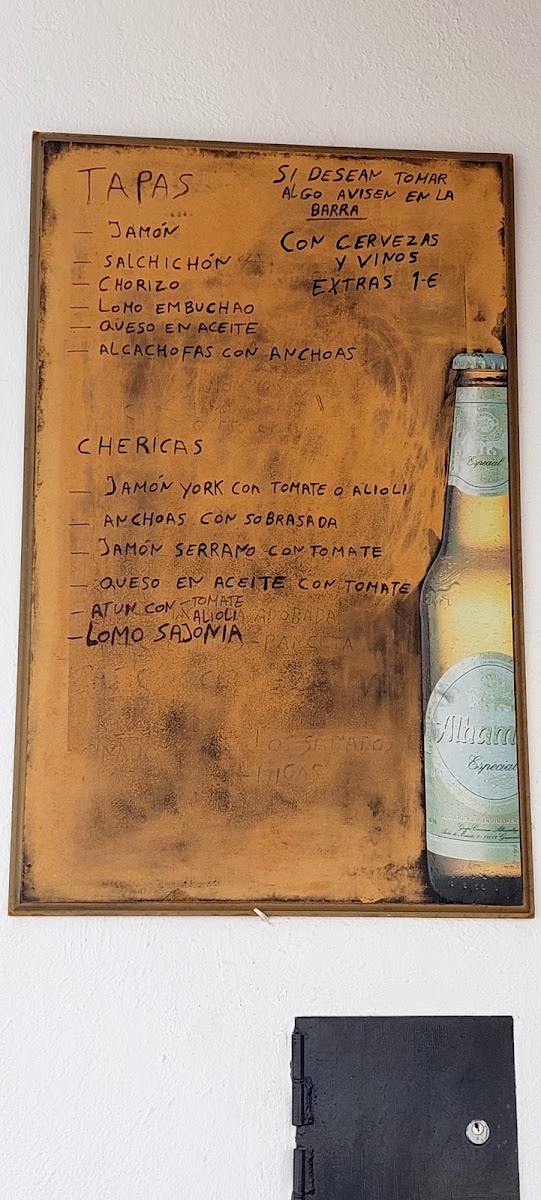 TAPAS
— JAMÓN
— SALCHICHÓN
— CHORIZO
— LOMO EMBUCHAO
— QUESO EN ACEITE
— ALCACHOFAS CON ANCHOAS
SI DESEAN TOMAR
ALGO AVISEN EN LA
BARRA
CON CERVEZAS
Y VINOS
EXTRAS 1-€
CHERICAS
— JAMÓN YORK CON TOMATE O ALIOLI
— ANCHOAS CON SOBRASADA
— JAMÓN SERRANO CON TOMATE
— QUESO EN ACEITE CON TOMATE
— ATUN CON - TOMATE
ALIOLI
- LOMO SAJONIA
Especial
Alham
Especial